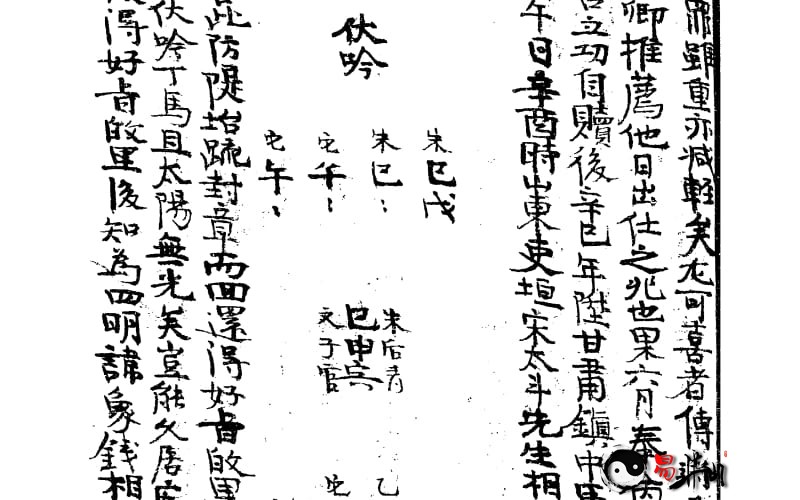 鼎雖重亦減輕矣尤可喜者傳
卿推薦他日出仕之兆也果六月奉
立功自贖後辛巳年陞甘肅鎮中
午日辛酉時山東吏垣宋太斗先生相
朱 巳戌
朱 巳:
乇 午:
乇 午:
伏吟
朱后青
巳申寅
玄子官
乙
乇
此防隄培疏封章而回還得好音的里
伏吟丁馬且太陽無光矣豈能久居
得好音的里後知為四明諱象錢相
易